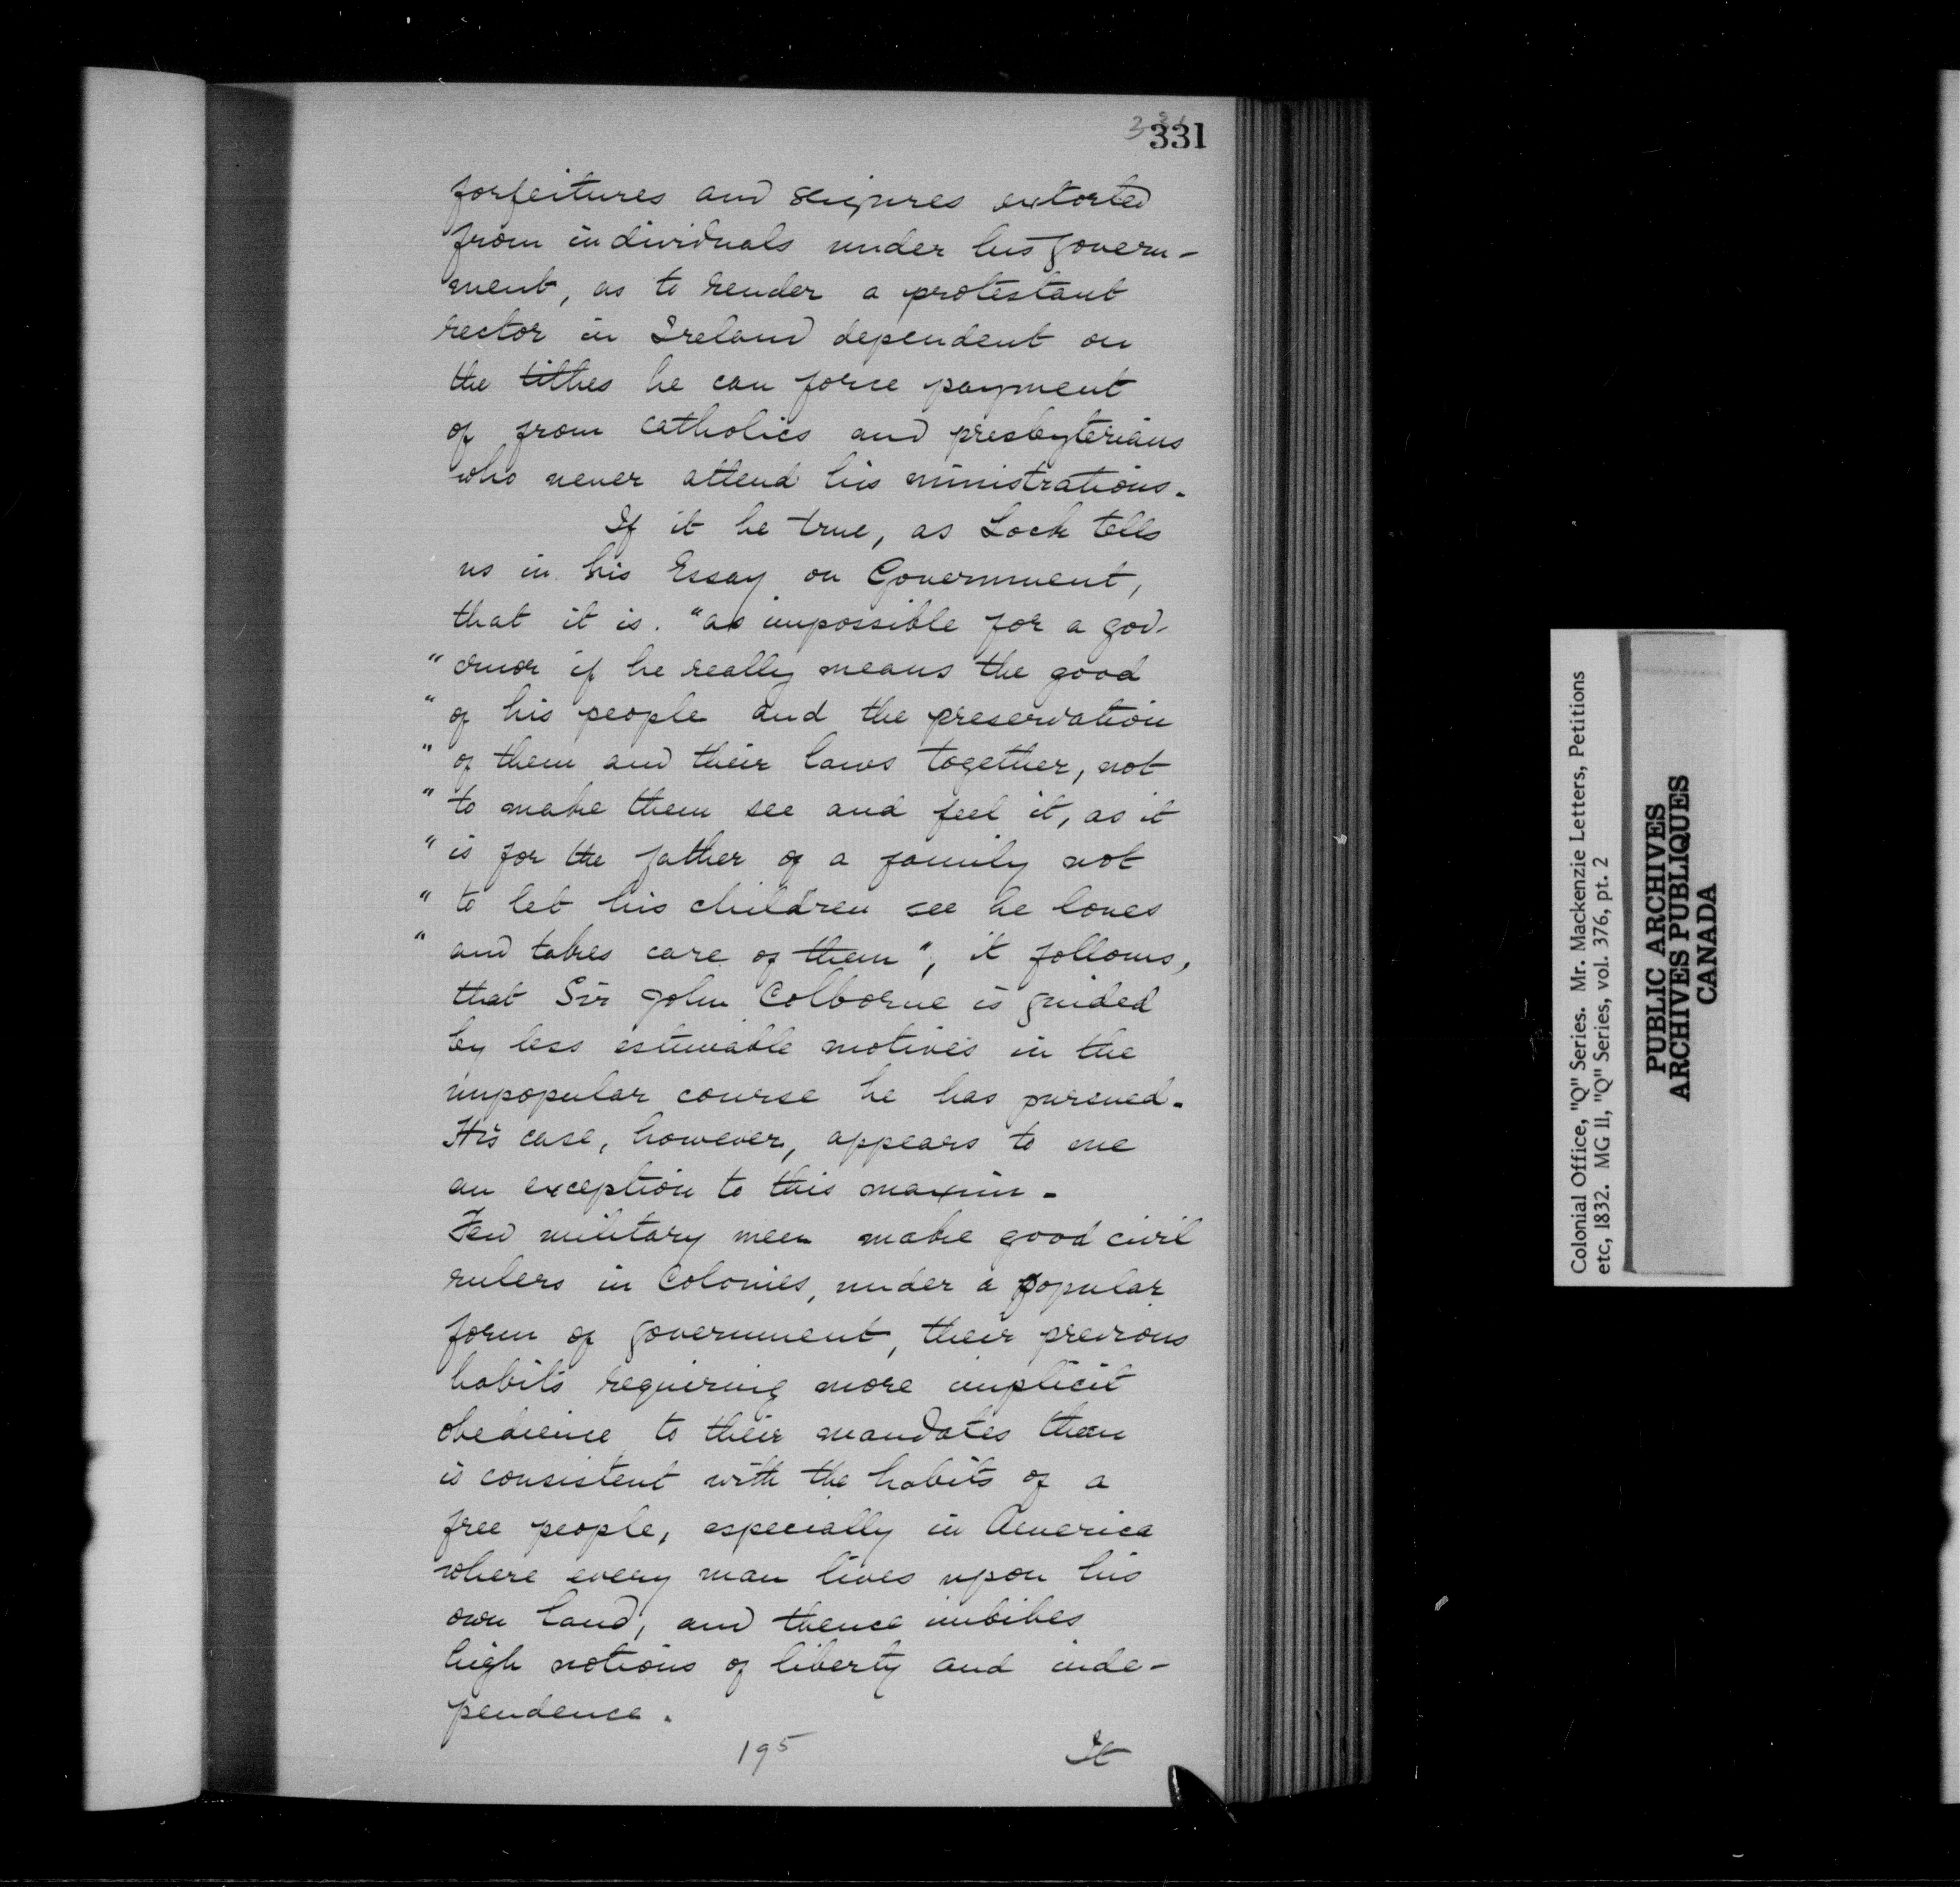 331
forfeitures and seizures extorted
from individuals under his govern-
ment, as to render a protestant
rector in Ireland dependent on
the tithes he can force payment
of from catholics and presbyterians
who never attend his ministrations.
If it be true, as Lock tells
us in his Essay on Government,
that it is. "as impossible for a gov-
" ernor if he really means the good
" of his people and the preservation
" of them and their laws together, not
" to make them see and feel it, as it
" is for the father of a family not
" to let his children see he loves
" and takes care of them", it follows,
that Sir John Colborne is guided
by less estimable motives in the
unpopular course he has pursued.
His case, however, appears to me
an exception to this maxim.
Few military men make good civil
rulers in Colonies, under a popular
form of government, their previous
habits requiring more implicit
obedience to their mandates than
is consistent with the habits of a
free people, especially in America
where every man lives upon his
own land, and thence imbibes
high notions of liberty and inde-
pendence.
195 It
Colonial Office, "Q" Series. Mr. Mackenzie Letters, Petitions
etc, 1832. MG 11, "Q" Series, vol. 376, pt. 2
PUBLIC ARCHIVES
ARCHIVES PUBLIQUES
CANADA